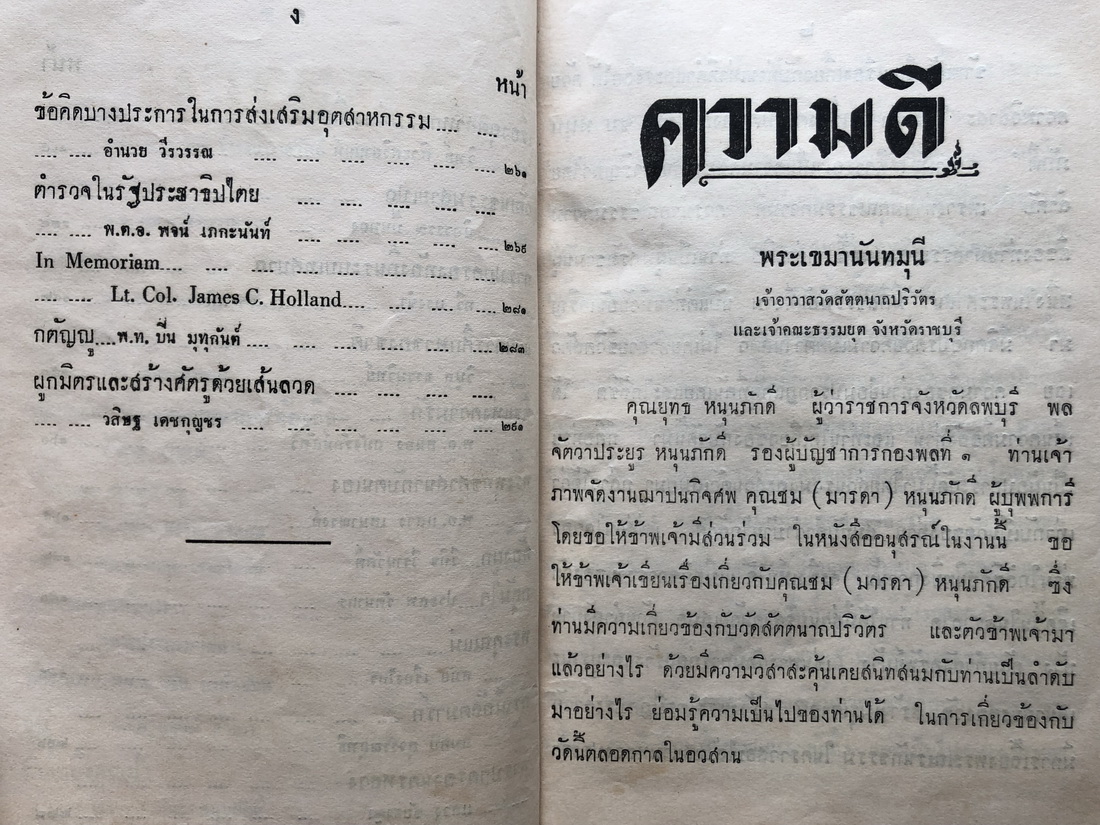 ง
หน้า
ข้อคิดบางประการในการส่งเสริมอุตสาหกรรม.... ....
.... .... อำนวย วีรวรรณ .... .... .... .... .... ๒๖๑
ตำรวจในรัฐประชาธิปไตย .... .... .... ....
.... .... พ.ต.อ. พจน์ เภกะนันท์ .... .... .... ....๒๖๙
In Memoriam.... .... .... .... .... .... ....
.... .... Lt. Col. James C. Holland.... .... .... ....๒๘๑
กตัญญู....พ.ท. ปิ่น มุทุกันต์ .... .... .... .... ....๒๘๓
ผูกมิตรและสร้างศัตรูด้วยเส้นลวด .... .... ....
.... .... วสิษฐ เดชกุญชร .... .... .... .... ....๒๙๑
ความดี
พระเขมานันทมุนี
เจ้าอาวาสวัดสัตตนาถปริวัตร
และเจ้าคณะธรรมยุต จังหวัดราชบุรี
คุณยุทธ หนุนภักดี ผู้ว่าราชการจังหวัดลพบุรี พล
จัตวาประยูร หนุนภักดี รองผู้บัญชาการกองพลที่ ๑ ท่านเจ้า
ภาพจัดงานฌาปนกิจศพ คุณชม (มารดา) หนุนภักดี ผู้บุพพการี
โดยขอให้ข้าพเจ้ามีส่วนร่วม ในหนังสืออนุสรณ์ในงานนี้ ขอ
ให้ข้าพเจ้าเขียนเรื่องเกี่ยวกับคุณชม (มารดา) หนุนภักดี ซึ่ง
ท่านมีความเกี่ยวข้องกับวัดสัตตนาถปริวัตร และตัวข้าพเจ้ามา
แล้วอย่างไร ด้วยมีความวิสาสะคุ้นเคยสนิทสนมกับท่านเป็นลำดับ
มาอย่างไร ย่อมรู้ความเป็นไปของท่านได้ ในการเกี่ยวข้องกับ
วัดนี้ตลอดกาลในอวสาน